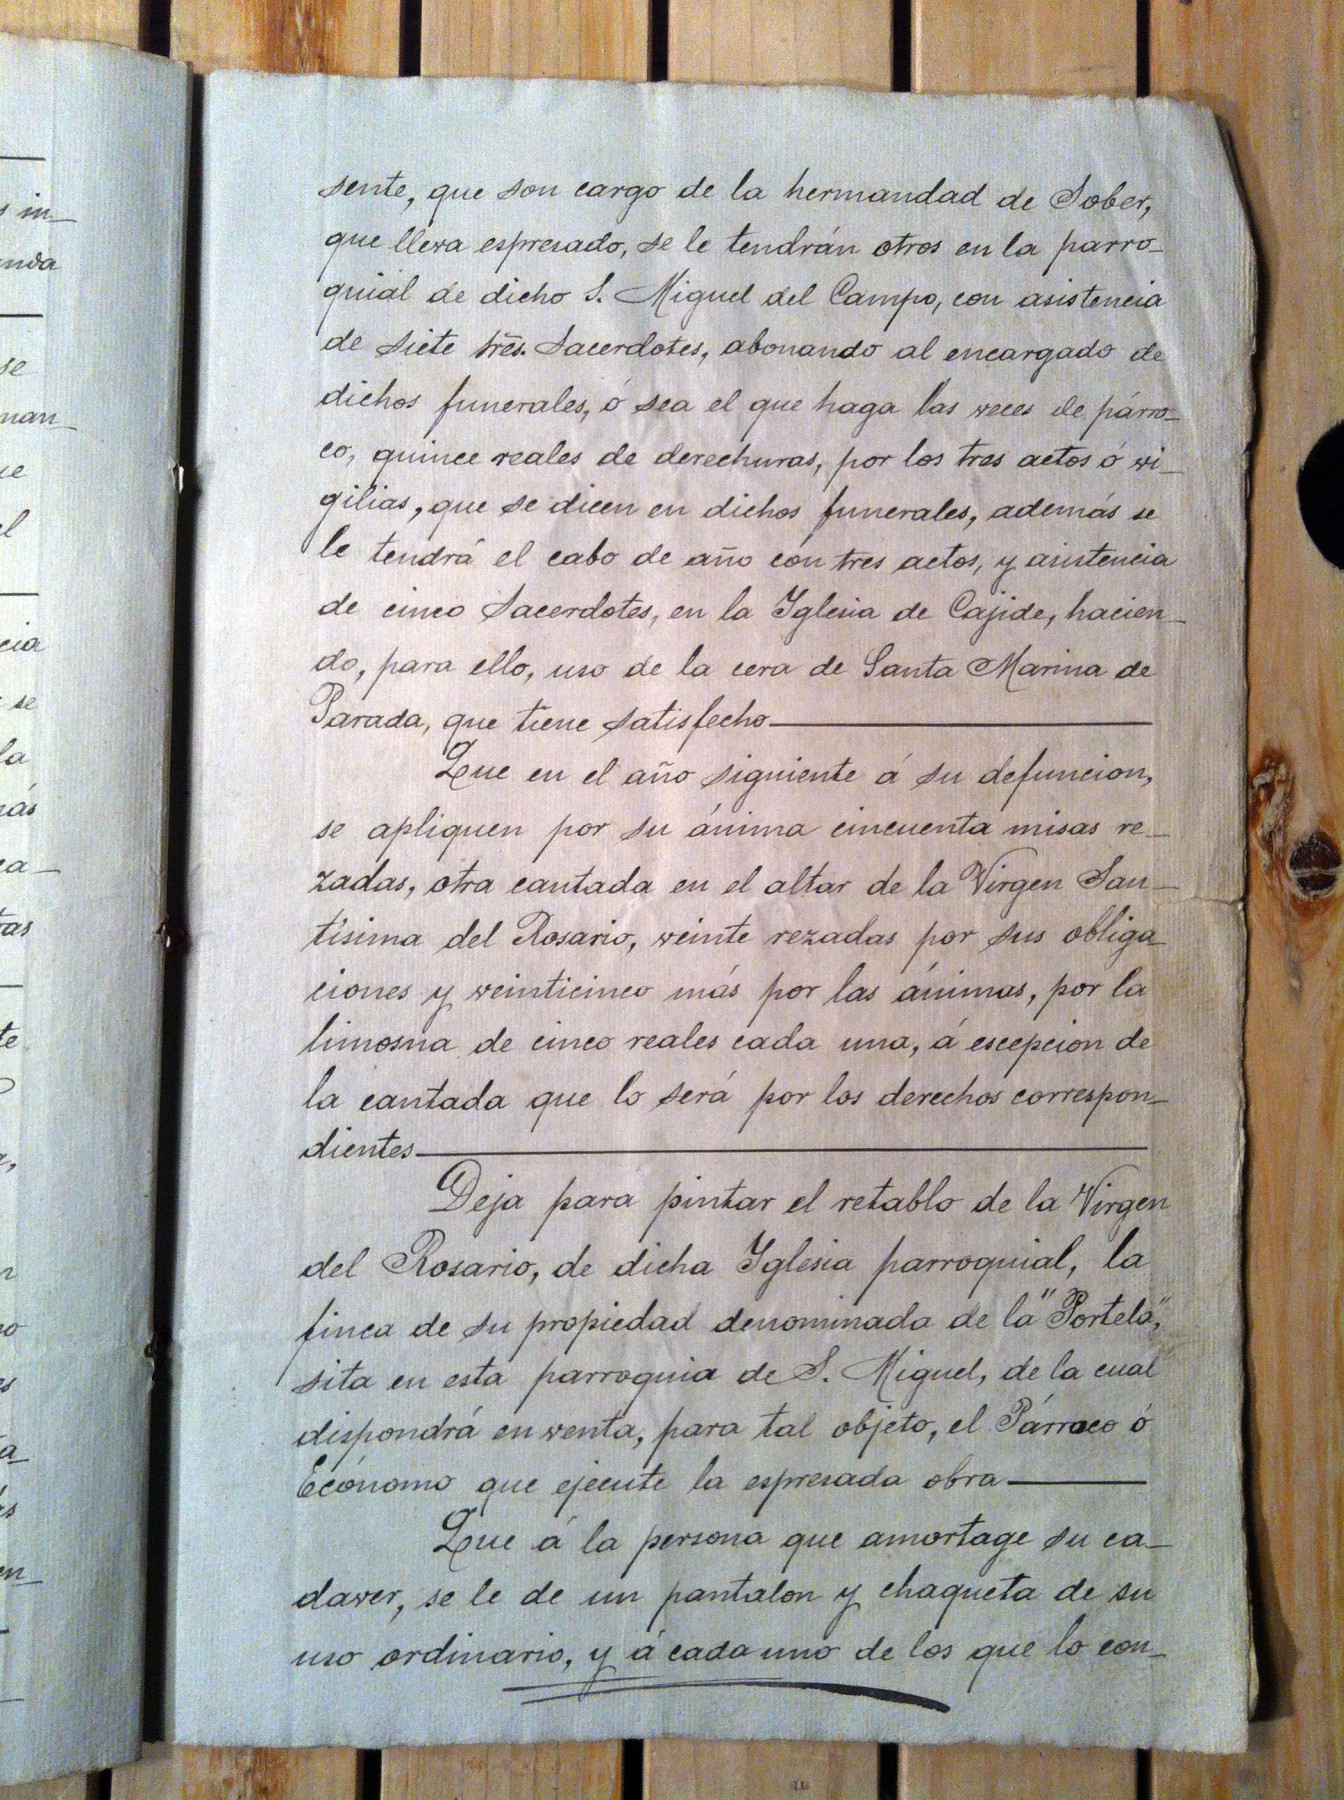 sente, que son cargo de la hermandad de Sober,
que lleva espresado, se le tendrán otros en la parro-
quial de dicho S. Miguel del Campo, con asistencia
de siete Sres. Sacerdotes, abonando al encargado de
dichos funerales, ó sea el que haga las veces de párro-
co, quince reales de derechuras, por los tres actos ó vi-
gilias, que se dicen en dichos funerales, además se
le tendrá el cabo de año con tres actos, y asistencia
de cinco Sacerdotes, en la Yglesia de Cajide, hacien-
do, para ello, uso de la cera de Santa Marina de
Parada, que tiene satisfecho
Que en el año siguiente á su defuncion,
se apliquen por su ánima cincuenta misas re-
zadas, otra cantada en el altar de la Virgen San-
tísima del Rosario, veinte rezadas por sus obliga
ciones y veinticinco más por las ánimas, por la
limosna de cinco reales cada una, á escepcion de
la cantada que lo será por los derechos correspon-
dientes
Deja para pintar el retablo de la Virgen
del Rosario, de dicha Yglesia parroquial, la
finca de su propiedad denominada de la "Portela",
sita en esta parroquia de S. Miguel, de la cual
dispondrá en venta, para tal objeto, el Párroco ó
Ecónomo que ejecute la espresada obra
Que á la persona que amortage su ca-
daver, se le de un pantalon y chaqueta de su
uso ordinario, y á cada uno de los que lo con-